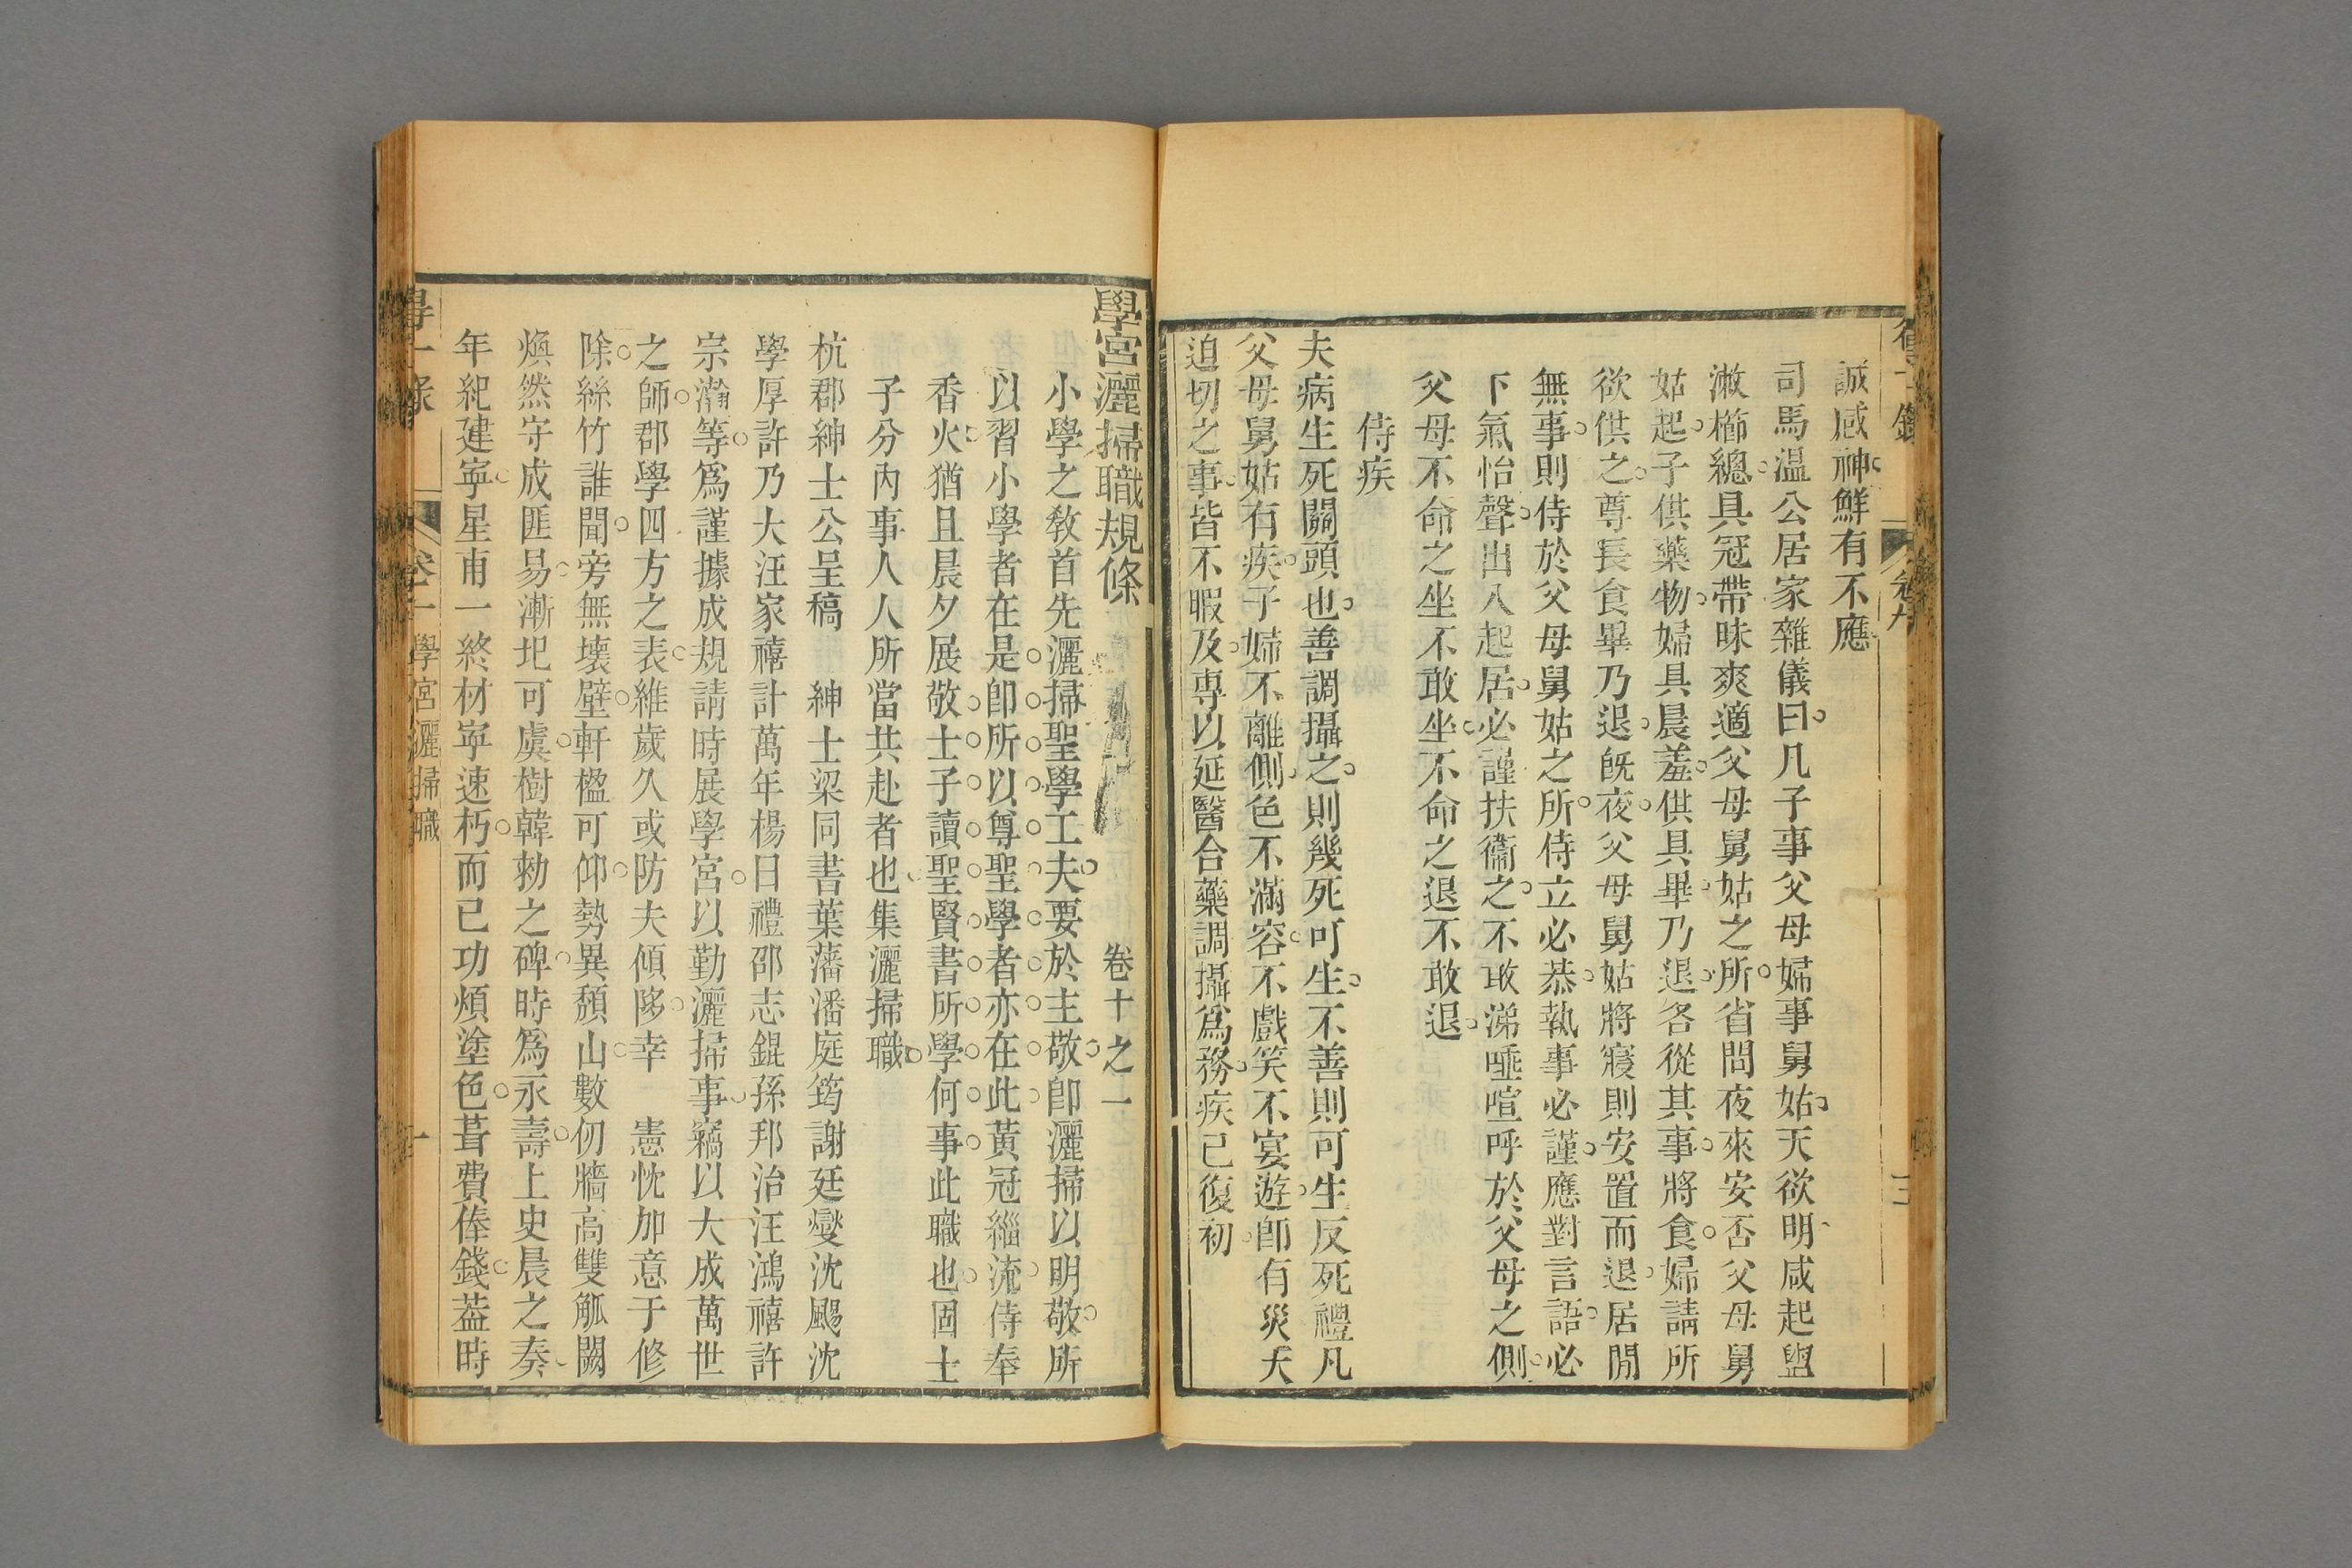 誠感神鮮有不應
司馬溫公居家雜儀曰凡子事父母婦事舅姑天欲明咸起盥
漱櫛總具冠帶昧爽適父母舅姑之所省問夜來安否父母舅
姑起子供藥物婦具晨羞供具畢乃退各從其事將食婦請所
欲供之尊長食畢乃退旣夜父母舅姑將寢則安置而退居閒
無事則侍於父母舅姑之所侍立必恭執事必謹應對言語必
下氣怡聲出入起居必謹扶衞之不敢涕唾喧呼於父母之側
父母不命之坐不敢坐不命之退不敢退
侍疾
夫病生死關頭也善調攝之則幾死可生不善則可生反死禮凡
父母舅姑有疾子婦不離側色不滿容不戲笑不宴遊卽有災夭
迫切之事皆不暇及專以延醫合藥調攝爲務疾已復初
學宮灑掃職規條
卷十之一
小學之敎首先灑掃聖學工夫要於主敬卽灑掃以明敬所
以習小學者在是卽所以尊聖學者亦在此黃冠緇流侍奉
香火猶且晨夕展敬士子讀聖賢書所學何事此職也固士
子分內事人人所當共赴者也集灑掃職
杭郡紳士公呈稿 紳士梁同書葉藩潘庭筠謝廷燮沈颺沈
學厚許乃大汪家禧計萬年楊日禮邵志錕孫邦治汪鴻禧許
宗瀚等爲謹據成規請時展學宮以勤灑掃事竊以大成萬世
之師郡學四方之表維歲久或防夫傾陊幸 憲忱加意于修
除絲竹誰聞旁無壞壁軒楹可仰勢異頹山數仞牆高雙觚闕
煥然守成匪易漸圯可虞樹韓勑之碑時爲永壽上史晨之奏
年紀建寧星甫一終材寧速朽而已功煩塗色葺費俸錢葢時
得一录
卷十一
學宮灑掃職
一